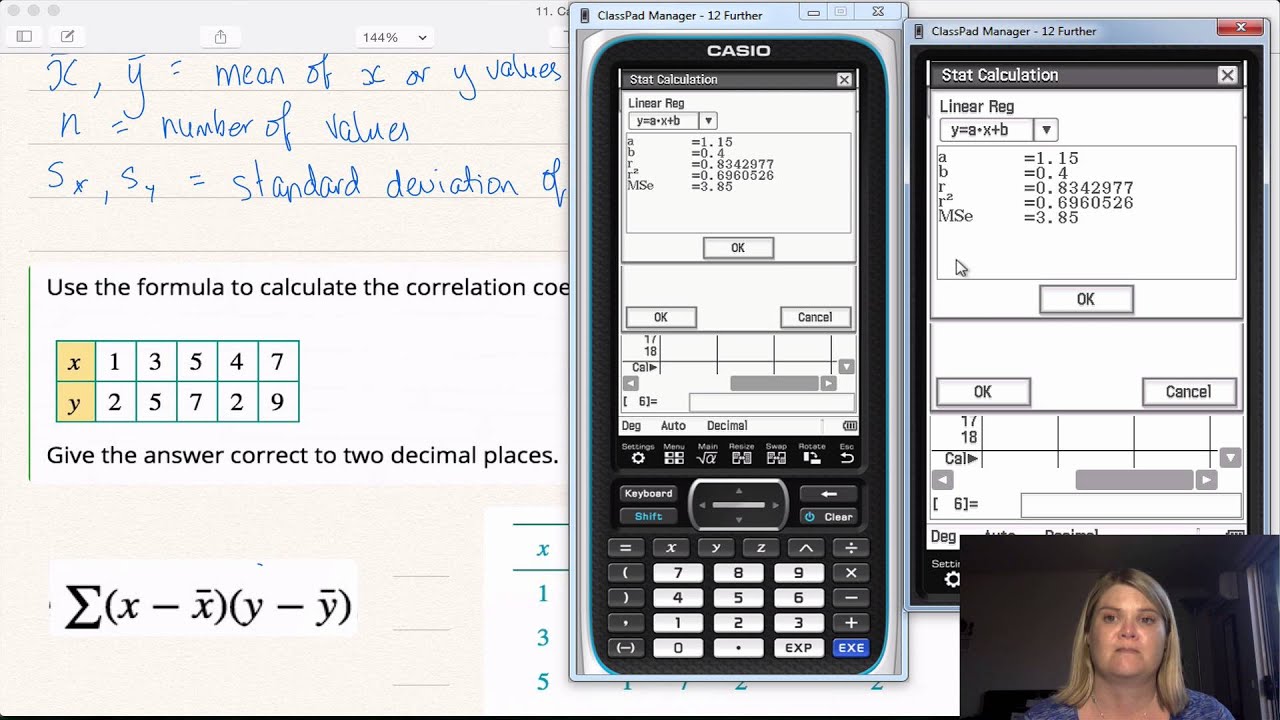 11. Ca
144%
x̄, ȳ = mean of x or y values
n = number of values
Sx, Sy = standard deviation of
Use the formula to calculate the correlation coe
x 1 3 5 4 7
y 2 5 7 2 9
Give the answer correct to two decimal places.
∑(x − x̄)(y − ȳ)
x
1
3
5
ClassPad Manager - 12 Further
CASIO
Stat Calculation
Linear Reg
y=a•x+b
a =1.15
b =0.4
r =0.8342977
r² =0.6960526
MSe =3.85
OK
OK Cancel
17
18
Cal▶
[ 6]=
Deg Auto Decimal
Settings Menu Main Resize Swap Rotate Esc
√α
Keyboard
Shift Clear
= x y z ^ ÷
( 7 8 9 ×
) 4 5 6 −
, 1 2 3 +
(−) 0 • EXP EXE
ClassPad Manager - 12 Further
Stat Calculation
Linear Reg
y=a•x+b
a =1.15
b =0.4
r =0.8342977
r² =0.6960526
MSe =3.85
OK
OK Cancel
17
18
Cal▶
[ 6]=
Deg